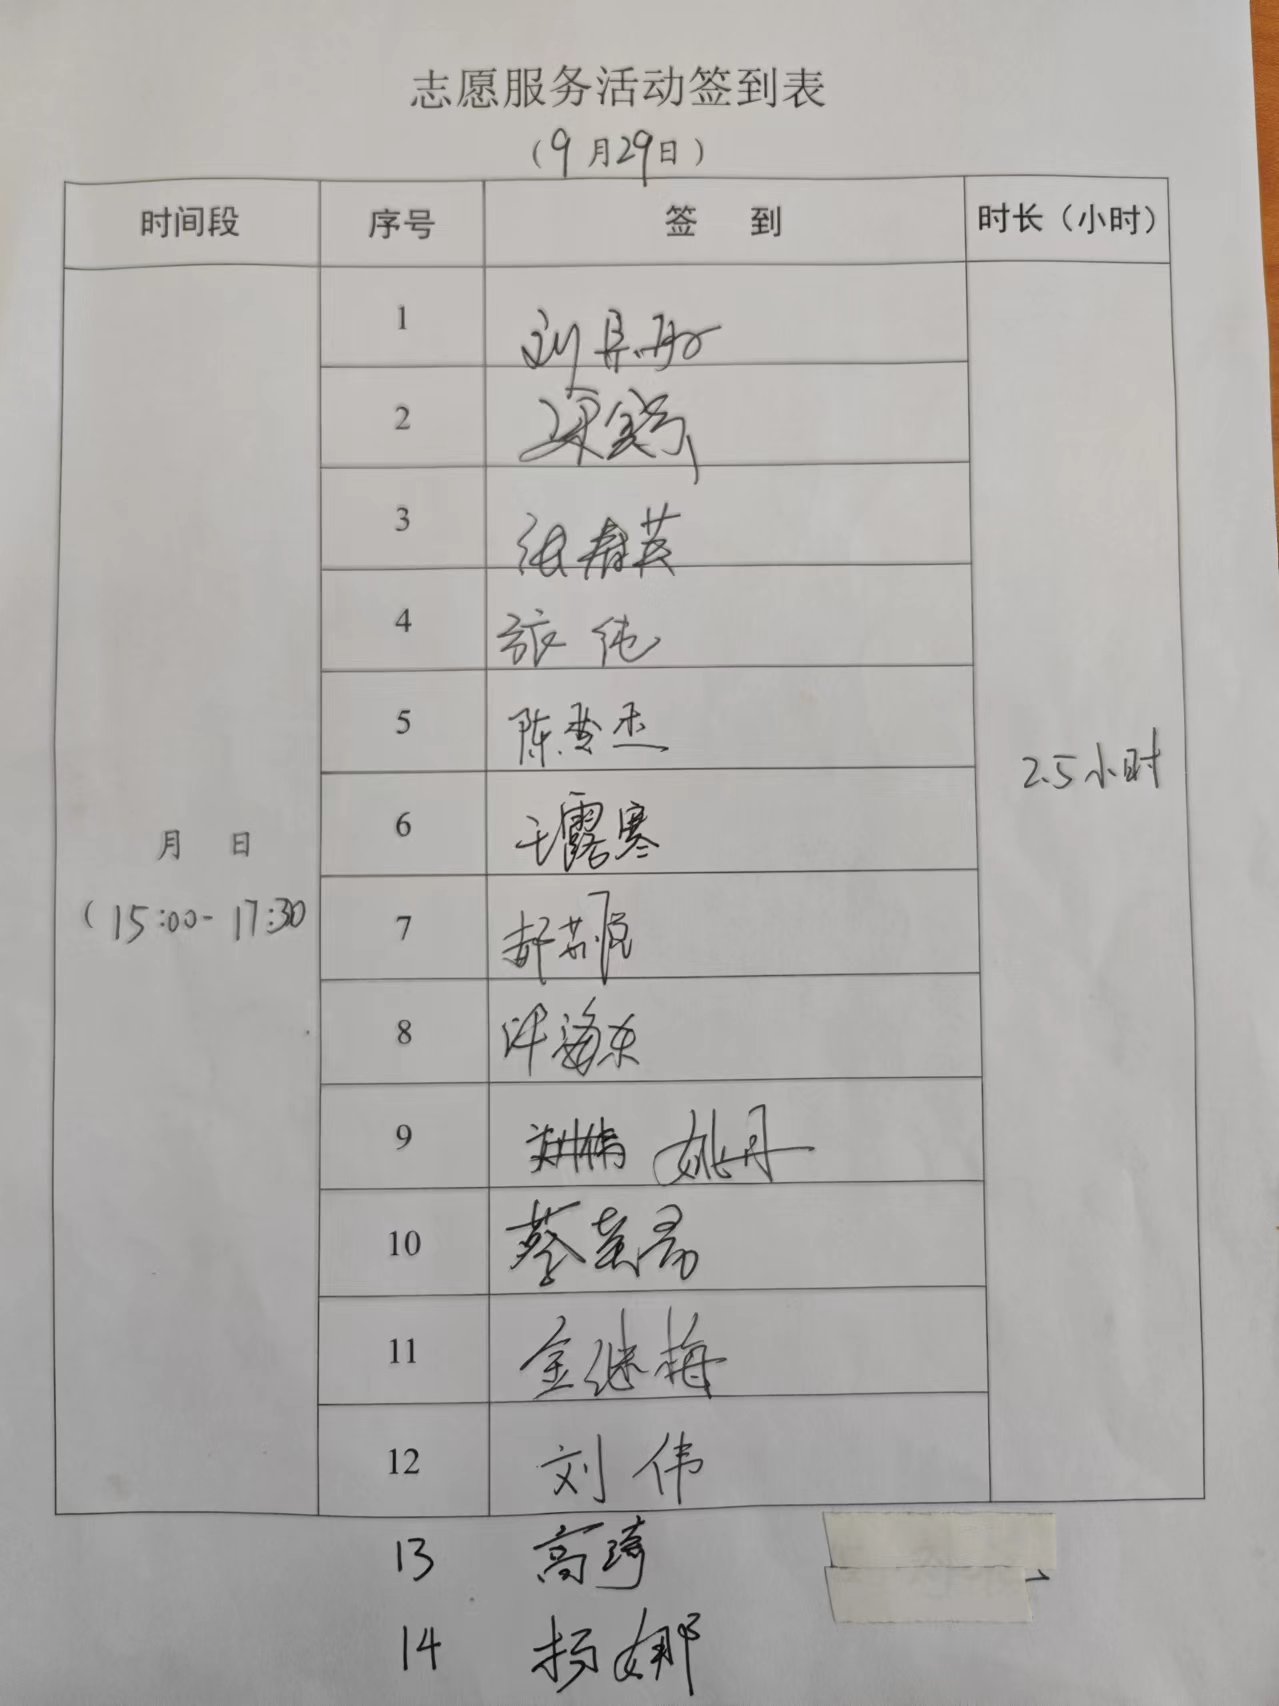 志愿服务活动签到表
（9月29日）
时间段 序号 签 到 时长（小时）
1 刘
2 梁
3 张春英
4 张纯
5 陈雪杰
6 王露寒
7 郝苏
8 许海东
9 姚丹
10 蔡
11 金继梅
12 刘伟
月 日
（15:00-17:30
2.5小时
13 高琦
14 杨娜